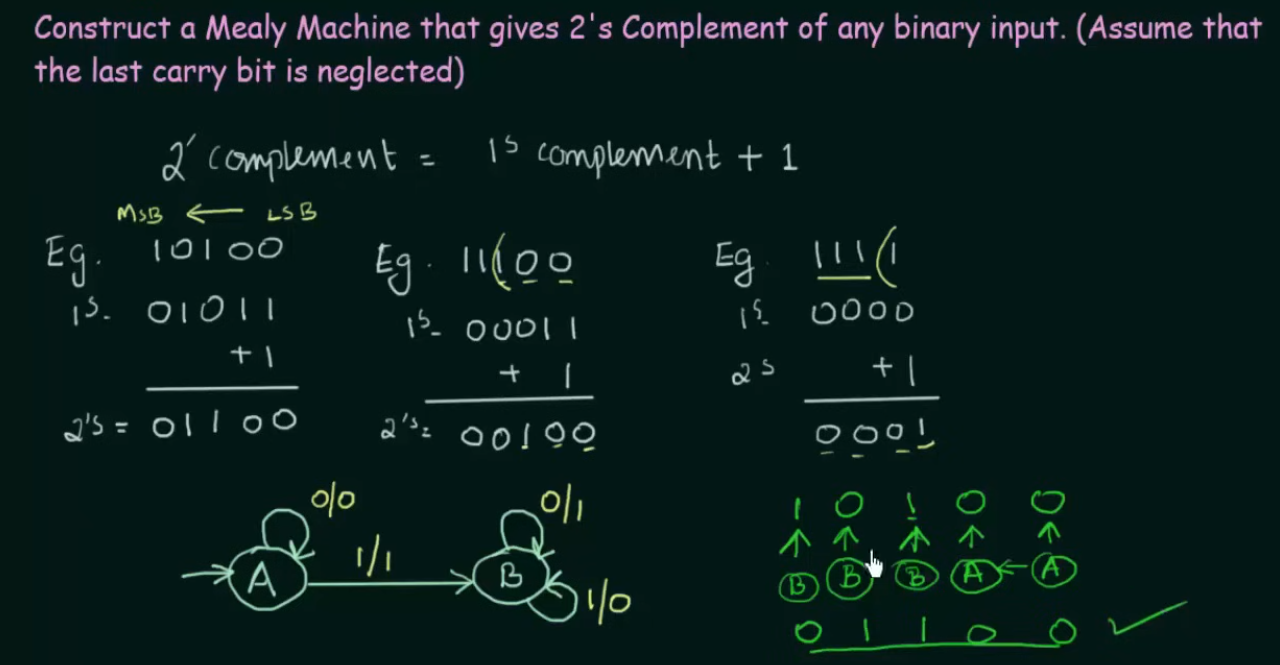 Construct a Mealy Machine that gives 2's Complement of any binary input. (Assume that
the last carry bit is neglected)
2' complement = 1s complement + 1
MSB ← LSB
Eg. 10100
1s- 01011
+1
2's = 01100
Eg. 11100
1s- 00011
+ 1
2's= 00100
Eg. 1111
1s- 0000
2s +1
0001
0/0
1/1
0/1
A
B
1/0
1 0 1 0 0
B B B A ← A
0 1 1 0 0 ✓